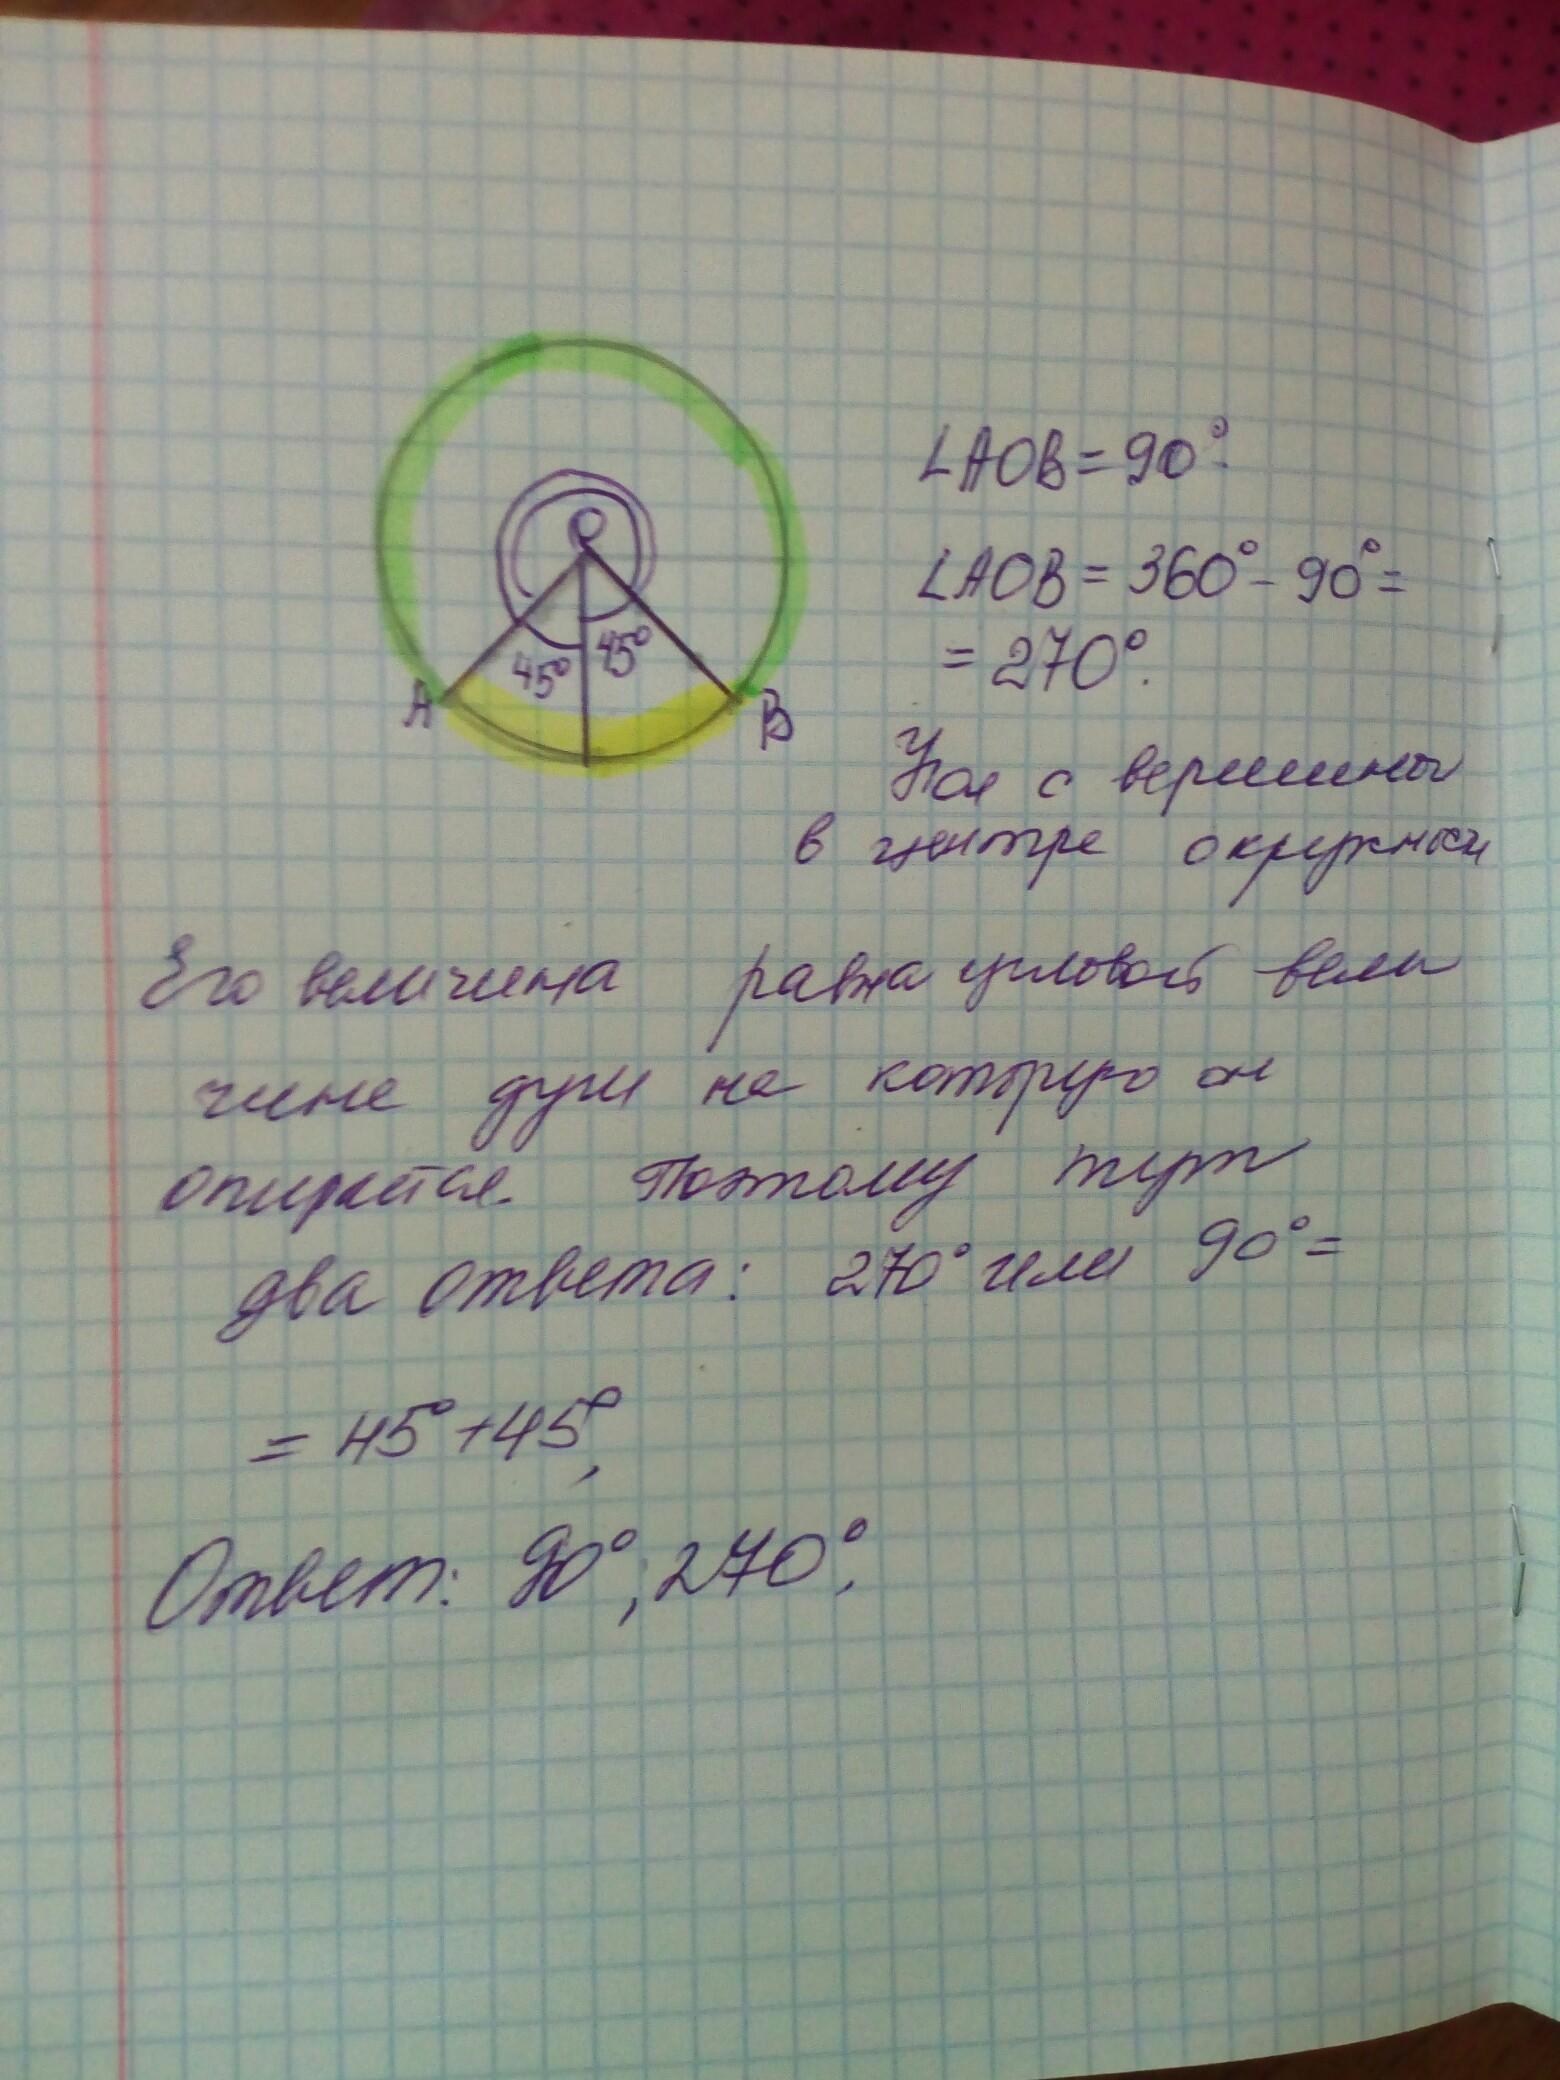 O
45° 45°
A B
∠AOB = 90°.
∠AOB = 360° - 90° =
= 270°.
Угол с вершиной
в центре окружности
Его величина равна угловой вели
чине дуги на которую он
опирается. Поэтому тут
два ответа: 270° или 90° =
= 45° + 45°,
Ответ: 90°; 270°.